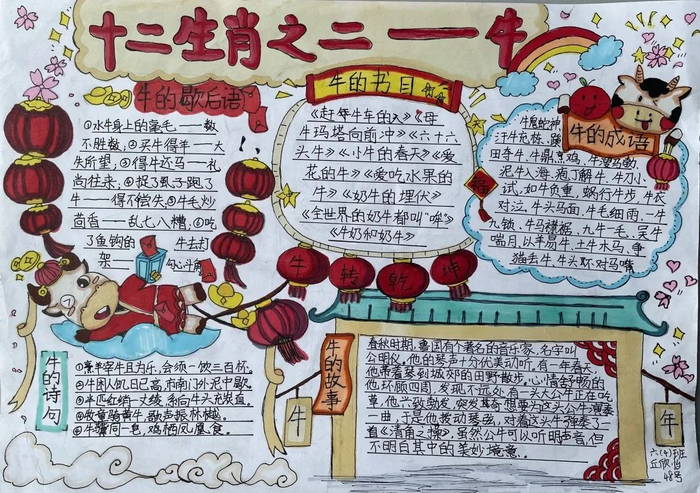 十二生肖之二——牛
牛的歇后语
①水牛身上的毫毛——数
不胜数,②买牛得羊——大
失所望,③得牛还马——礼
尚往来,④捉了虱子跑了
牛——得不偿失,⑤牛毛炒
茴香——乱七八糟,⑥吃
了鱼钩的牛去打
架——勾心斗角
牛的书目
《赶牛车的人》《母
牛玛塔向前冲》《六十六
头牛》《小牛的春天》《爱
花的牛》《爱吃水果的
牛》《奶牛的埋伏》
《全世界的奶牛都叫"哞》
《牛奶和奶牛》
牛的成语
牛鬼蛇神
汗牛充栋、蹊
田夺牛、牛鼎烹鸡、牛溲马勃
泥牛入海、庖丁解牛、牛刀小
试、如牛负重、蜗行牛步、牛衣
对泣、牛头马面、牛毛细雨、一牛
九锁、牛马襟裾、九牛一毛、买牛
喘月、以羊易牛、土牛木马、争
猫丢牛、牛头不对马嘴
福
牛转乾坤
牛的诗句
①烹羊宰牛且为乐,会须一饮三百杯。
②牛困人饥日已高,市南门外泥中歇。
③半匹红绡一丈绫,系向牛头充炭直。
④牧童骑黄牛,歌声振林樾。
⑤牛骥同一皂,鸡栖凤凰食。
牛的故事
春秋时期,鲁国有个著名的音乐家,名字叫
公明仪,他的琴声十分优美动听,有一年春天
他带着琴到城郊的田野散步,心情舒畅的
他环顾四周,发现不远处有一头大公牛正在吃
草,他兴致勃勃,突发奇想要为这头公牛演奏
一曲,于是他拨动琴弦,对着这头牛弹奏了一
首《清角之操》,虽然公牛可以听明声音,但
不明白其中的美妙境意。
牛
年
六(4)班
丘欣怡
48号